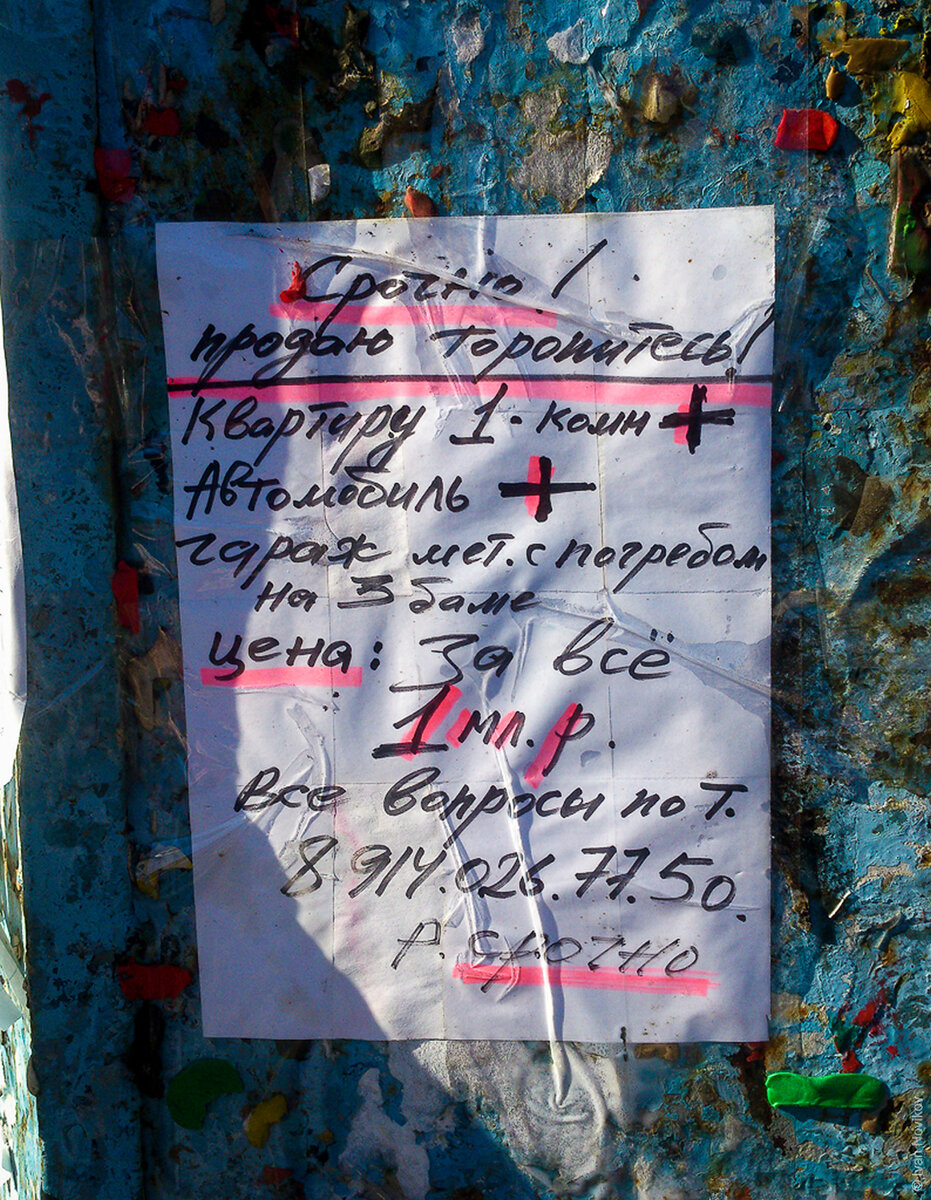 Срочно!
продаю торопитесь!
Квартиру 1-комн +
Автомобиль +
гараж мет. с погребом
на 3 баме
цена: За всё
1 мл. р.
Все вопросы по т.
8 914.026.77.50.
Р. срочно
© Ivan Novikov